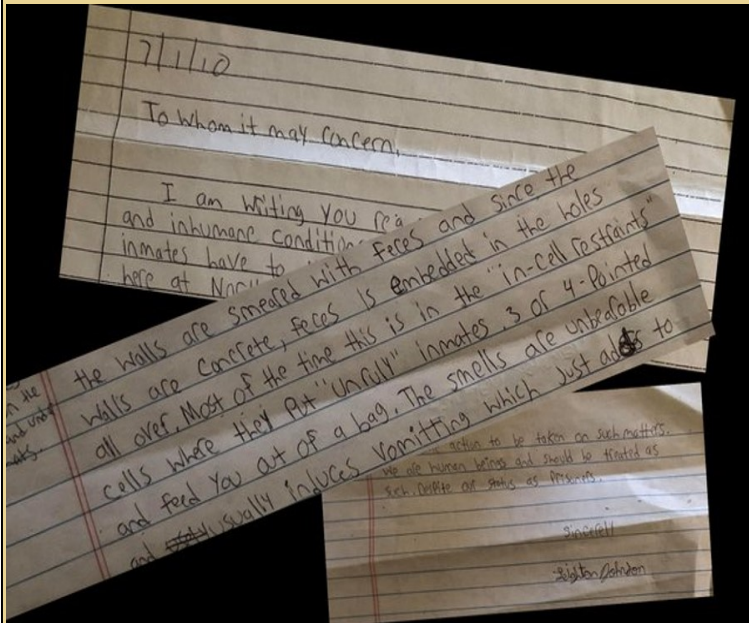 7/1/10
To whom it may concern,
I am writing you
and inhumane condition
inmates have to
here at
the walls are smeared with feces and since the
walls are concrete, feces is embedded in the holes
all over. Most of the time this is in the "in-cell restraints"
cells where they put "unruly" inmates. 3 or 4-Pointed
and feed you out of a bag. The smells are unbearable
and usually induces vomitting which just adds to
in the
and
action to be taken on such matters.
We are human beings and should be treated as
such. Despite our status as prisoners.
Sincerely
Johnson